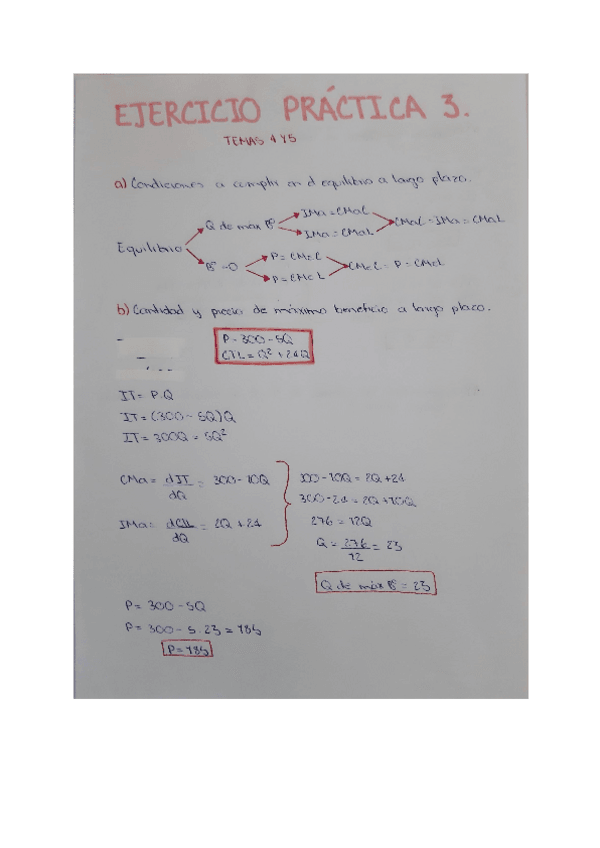 EJERCICIO PRÁCTICA 3.
TEMAS 4 Y 5
a) Condiciones a cumplir en el equilibrio a largo plazo.
Equilibrio
Q de máx Bº
IMa = CMaC
IMa = CMaL
CMaC = IMa = CMaL
Bº = 0
P = CMeC
P = CMeL
CMeC = P = CMeL
b) Cantidad y precio de máximo beneficio a largo plazo.
P = 300 - 5Q
CTL = Q² + 24Q
IT = P.Q
IT = (300 - 5Q)Q
IT = 300Q - 5Q²
CMa = dIT/dQ = 300 - 10Q
IMa = dCTL/dQ = 2Q + 24
300 - 10Q = 2Q + 24
300 - 24 = 2Q + 10Q
276 = 12Q
Q = 276/12 = 23
Q de máx Bº = 23
P = 300 - 5Q
P = 300 - 5.23 = 185
P = 185